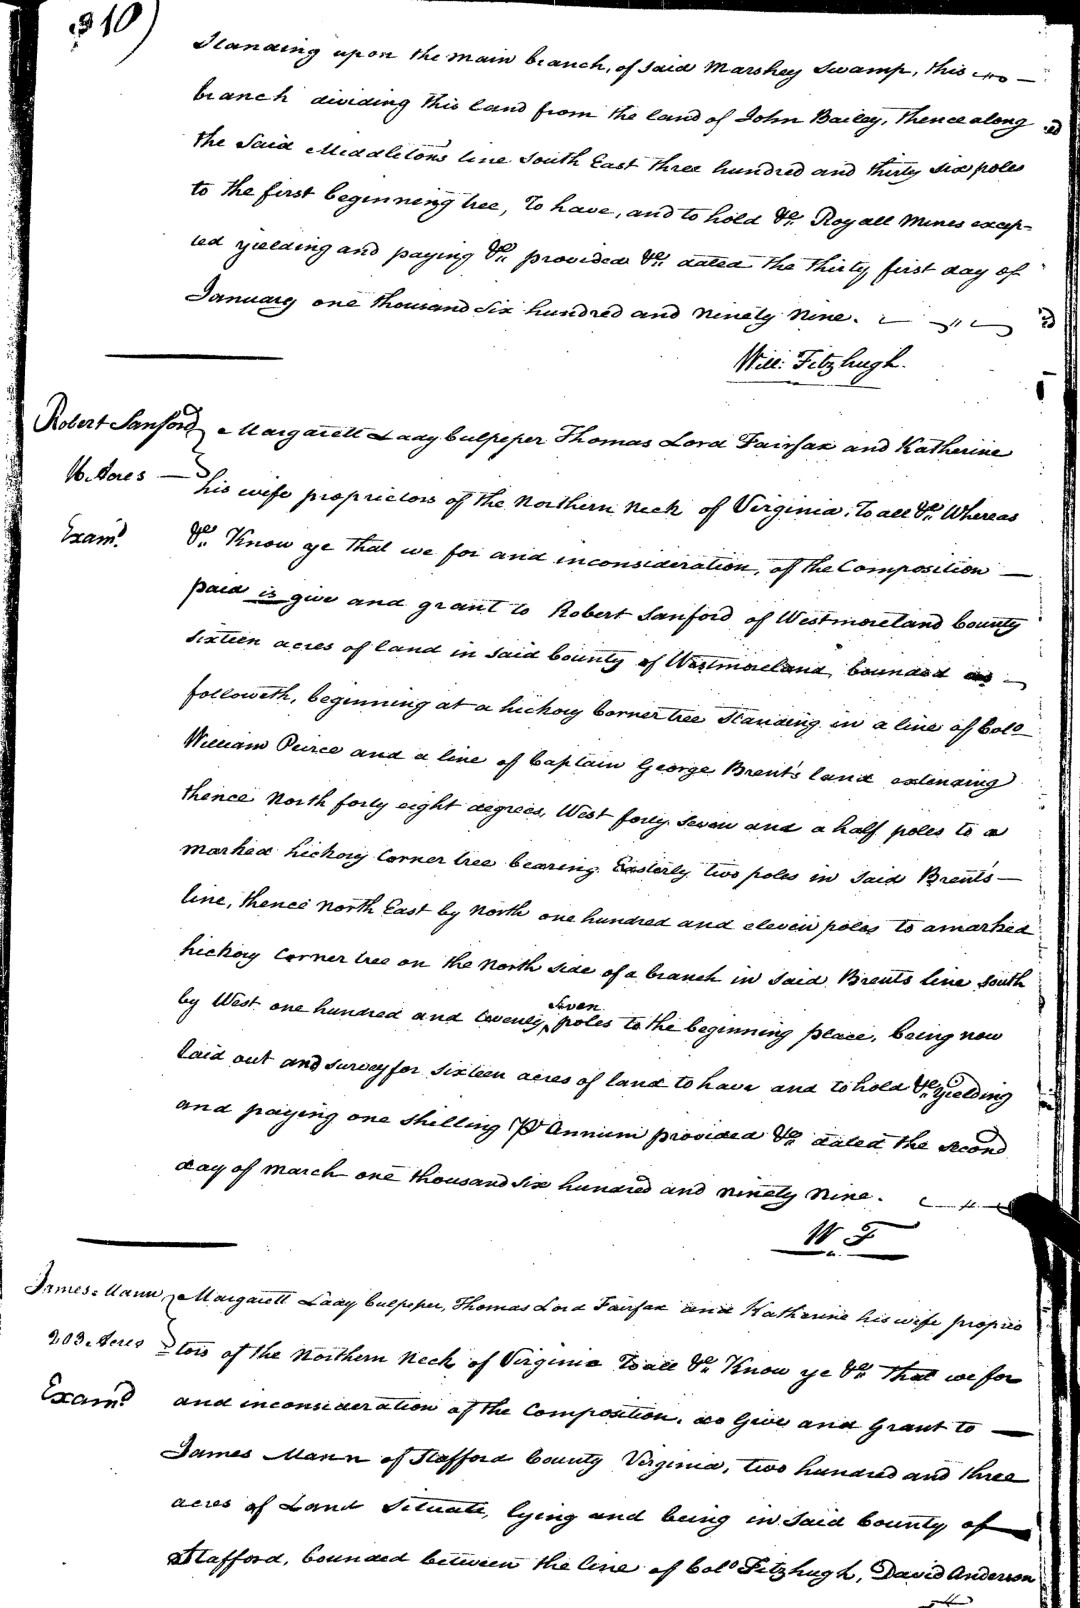 310)
Standing upon the main branch, of said Marshey Swamp, this
branch dividing this land from the land of John Bailey, thence along
the said Middleton's line South East three hundred and thirty six poles
to the first beginning tree, To have, and to hold &c. Royall Mines excep-
ted yielding and paying &c. provided &c. dated the thirty first day of
January one thousand six hundred and ninety nine.
Will: Fitzhugh.
Robert Sanford
16 Acres
Exam.d
Margarett Lady Culpeper Thomas Lord Fairfax and Katherine
his wife proprietors of the Northern Neck of Virginia, To all &c. Whereas
&c. Know ye that we for and in consideration, of the Composition
paid is give and grant to Robert Sanford of Westmoreland County
sixteen acres of land in said County of Westmoreland, bounded as
followeth, beginning at a hickory Corner tree standing in a line of Colo
William Peirce and a line of Captain George Brent's land extending
thence North forty eight degrees, West forty seven and a half poles to a
marked hickory Corner tree bearing Easterly two poles in said Brent's
line, thence North East by North one hundred and eleven poles to a marked
hickory Corner tree on the North side of a branch in said Brents line South
by West one hundred and twenty seven poles to the beginning place, being now
laid out and survey for sixteen acres of land to have and to hold &c. yielding
and paying one shilling Pr. Annum provided &c. dated the second
day of March one thousand six hundred and ninety nine.
W F
James Mann
203 Acres
Exam.d
Margarett Lady Culpeper, Thomas Lord Fairfax and Katherine his wife proprie
tors of the Northern Neck of Virginia To all &c. Know ye &c. That we for
and in consideration of the Composition, do Give and Grant to
James Mann of Stafford County Virginia, two hundred and three
acres of Land Situate, lying and being in said County of
Stafford, bounded between the line of Colo Fitzhugh, David Anderson